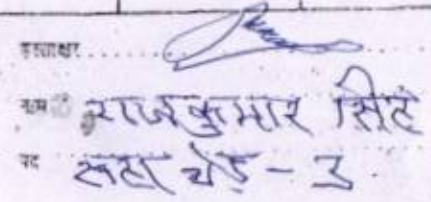 हस्ताक्षर
नाम राजकुमार सिंह
पद सहा ग्रेड - 3